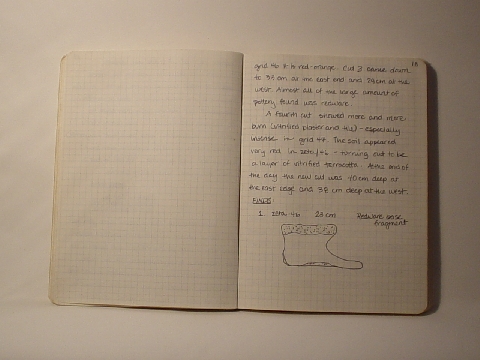 18
grid 46 it is red-orange. Cut 3 came down
to 38 cm at the east end and 28 cm at the
west. Almost all of the large amount of
pottery found was redware.
A fourth cut showed more and more
burn (vitrified plaster and tile) - especially
in grid 47. The soil appeared
very red in zeta/46 - turning out to be
a layer of vitrified terracotta. At the end of
the day the new cut was 40 cm deep at
the east edge and 38 cm deep at the west.
FINDS
1. zeta-46 28 cm Redware base
fragment